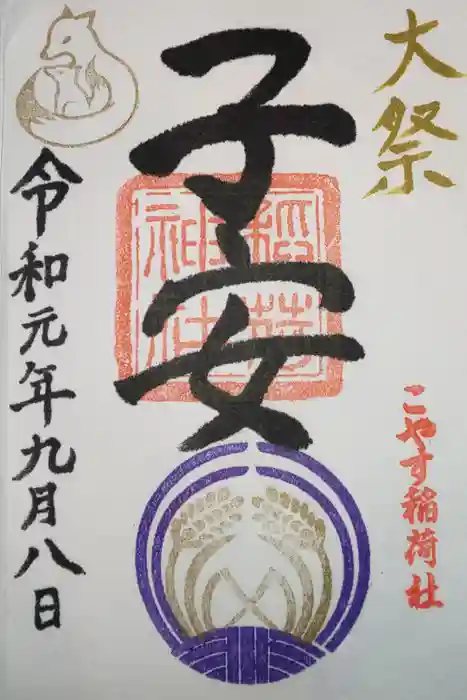 大祭
こやす稲荷社
子安
稲荷
神社
令和元年九月八日